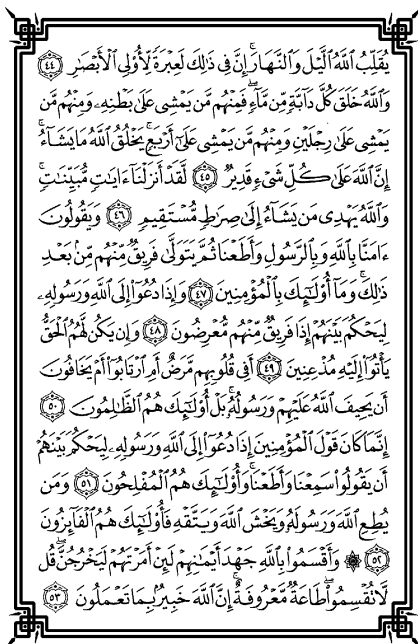 يُقَلِّبُ ٱللَّهُ ٱلَّيْلَ وَٱلنَّهَارَۚ إِنَّ فِى ذَٰلِكَ لَعِبْرَةً لِّأُو۟لِى ٱلْأَبْصَٰرِ ٤٤
وَٱللَّهُ خَلَقَ كُلَّ دَآبَّةٍ مِّن مَّآءٍۖ فَمِنْهُم مَّن يَمْشِى عَلَىٰ بَطْنِهِۦ وَمِنْهُم مَّن
يَمْشِى عَلَىٰ رِجْلَيْنِ وَمِنْهُم مَّن يَمْشِى عَلَىٰٓ أَرْبَعٍۚ يَخْلُقُ ٱللَّهُ مَا يَشَآءُۚ
إِنَّ ٱللَّهَ عَلَىٰ كُلِّ شَىْءٍ قَدِيرٌ ٤٥ لَّقَدْ أَنزَلْنَآ ءَايَٰتٍ مُّبَيِّنَٰتٍۚ
وَٱللَّهُ يَهْدِى مَن يَشَآءُ إِلَىٰ صِرَٰطٍ مُّسْتَقِيمٍ ٤٦ وَيَقُولُونَ
ءَامَنَّا بِٱللَّهِ وَبِٱلرَّسُولِ وَأَطَعْنَا ثُمَّ يَتَوَلَّىٰ فَرِيقٌ مِّنْهُم مِّنۢ بَعْدِ
ذَٰلِكَۚ وَمَآ أُو۟لَٰٓئِكَ بِٱلْمُؤْمِنِينَ ٤٧ وَإِذَا دُعُوٓا۟ إِلَى ٱللَّهِ وَرَسُولِهِۦ
لِيَحْكُمَ بَيْنَهُمْ إِذَا فَرِيقٌ مِّنْهُم مُّعْرِضُونَ ٤٨ وَإِن يَكُن لَّهُمُ ٱلْحَقُّ
يَأْتُوٓا۟ إِلَيْهِ مُذْعِنِينَ ٤٩ أَفِى قُلُوبِهِم مَّرَضٌ أَمِ ٱرْتَابُوٓا۟ أَمْ يَخَافُونَ
أَن يَحِيفَ ٱللَّهُ عَلَيْهِمْ وَرَسُولُهُۥۚ بَلْ أُو۟لَٰٓئِكَ هُمُ ٱلظَّٰلِمُونَ ٥٠
إِنَّمَا كَانَ قَوْلَ ٱلْمُؤْمِنِينَ إِذَا دُعُوٓا۟ إِلَى ٱللَّهِ وَرَسُولِهِۦ لِيَحْكُمَ بَيْنَهُمْ
أَن يَقُولُوا۟ سَمِعْنَا وَأَطَعْنَاۚ وَأُو۟لَٰٓئِكَ هُمُ ٱلْمُفْلِحُونَ ٥١ وَمَن
يُطِعِ ٱللَّهَ وَرَسُولَهُۥ وَيَخْشَ ٱللَّهَ وَيَتَّقْهِ فَأُو۟لَٰٓئِكَ هُمُ ٱلْفَآئِزُونَ
٥٢ ۞ وَأَقْسَمُوا۟ بِٱللَّهِ جَهْدَ أَيْمَٰنِهِمْ لَئِنْ أَمَرْتَهُمْ لَيَخْرُجُنَّۖ قُل
لَّا تُقْسِمُوا۟ۖ طَاعَةٌ مَّعْرُوفَةٌۚ إِنَّ ٱللَّهَ خَبِيرٌۢ بِمَا تَعْمَلُونَ ٥٣